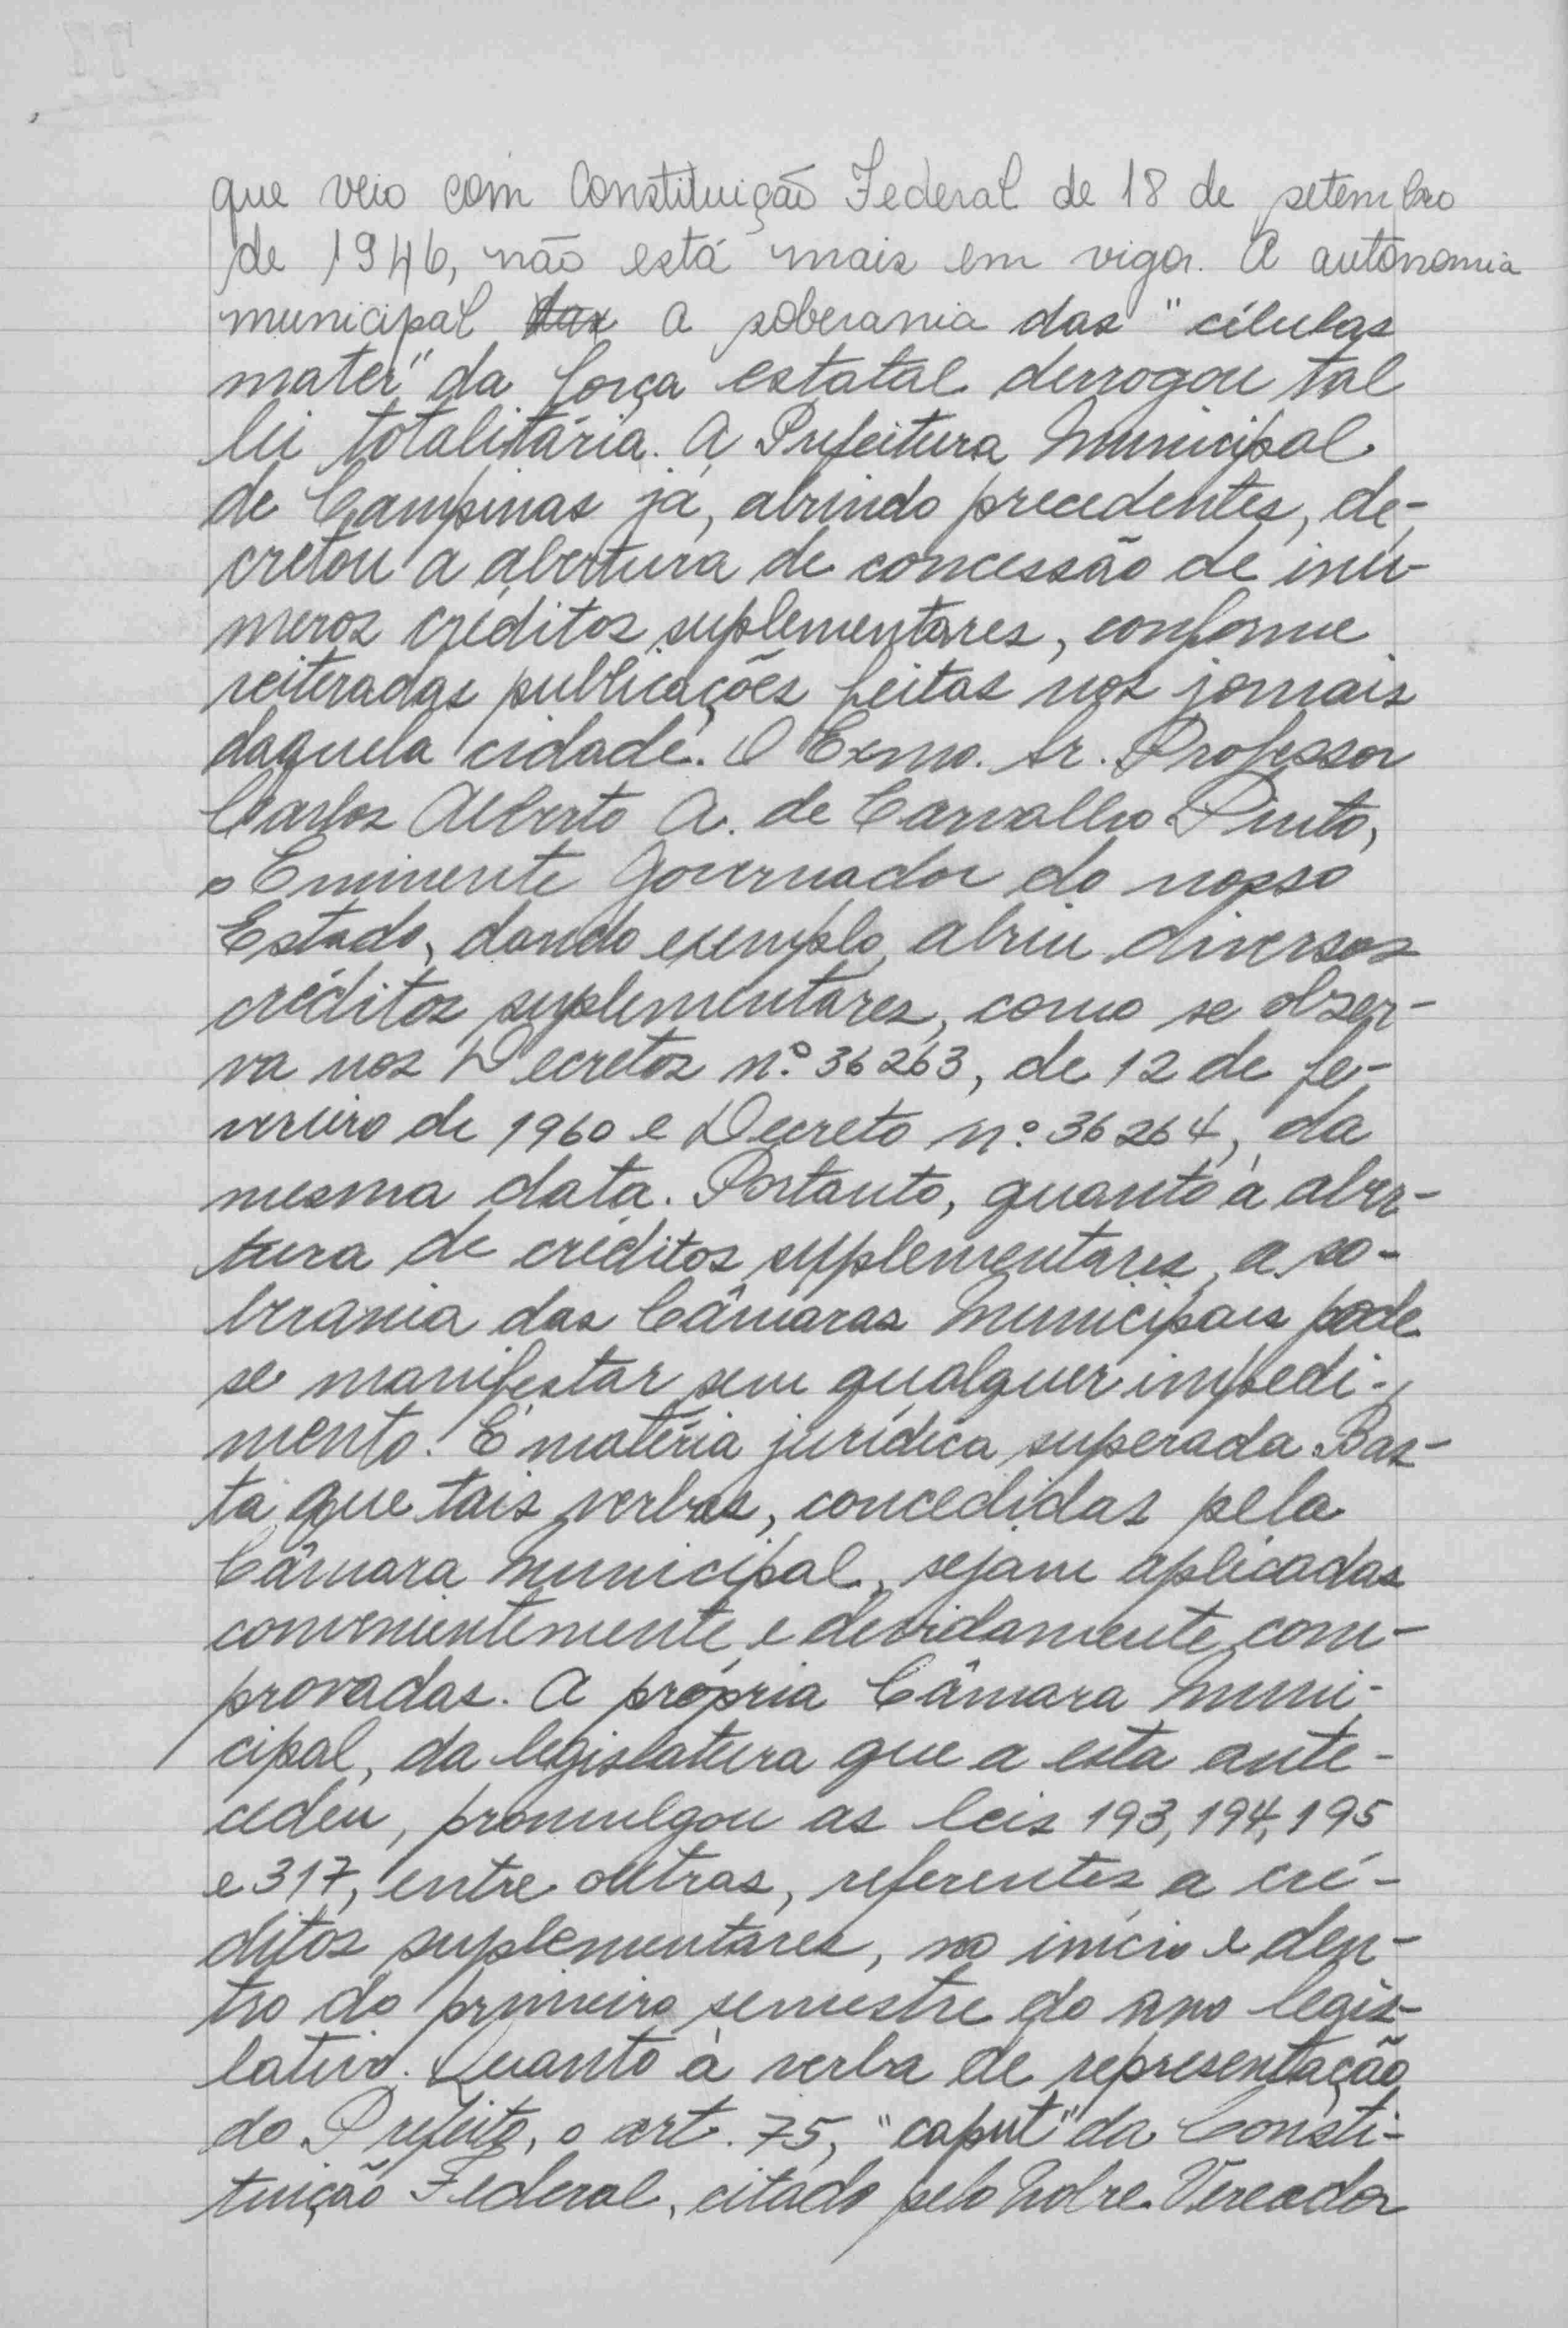 que veio com Constituição Federal de 18 de setembro
de 1946, não está mais em vigor. A autonomia
municipal a soberania das "células
mater" da força estatal derrogou tal
lei totalitária. A Prefeitura Municipal
de Campinas já, abrindo precedentes, de-
cretou a abertura de concessão de inú-
meros créditos suplementares, conforme
reiteradas publicações feitas nos jornais
daquela cidade. O Exmo. Sr. Professor
Carlos Alberto A. de Carvalho Pinto,
o Eminente Governador do nosso
Estado, dando exemplo, abriu diversos
créditos suplementares, como se obser-
va nos Decretos n.º 36263, de 12 de fe-
vereiro de 1960 e Decreto n.º 36264, da
mesma data. Portanto, quanto à aber-
tura de créditos suplementares, a so-
berania das Câmaras Municipais pode
se manifestar sem qualquer impedi-
mento. É matéria jurídica superada. Bas-
ta que tais verbas, concedidas pela
Câmara Municipal, sejam aplicadas
convenientemente e devidamente com-
provadas. A própria Câmara Muni-
cipal, da legislatura que a esta ante-
cedeu, promulgou as leis 193, 194, 195
e 317, entre outras, referentes a cré-
ditos suplementares, no início e den-
tro do primeiro semestre do ano legis-
lativo. Quanto à verba de representação
do Prefeito, o art. 75, "caput" da Consti-
tuição Federal, citado pelo Nobre Vereador